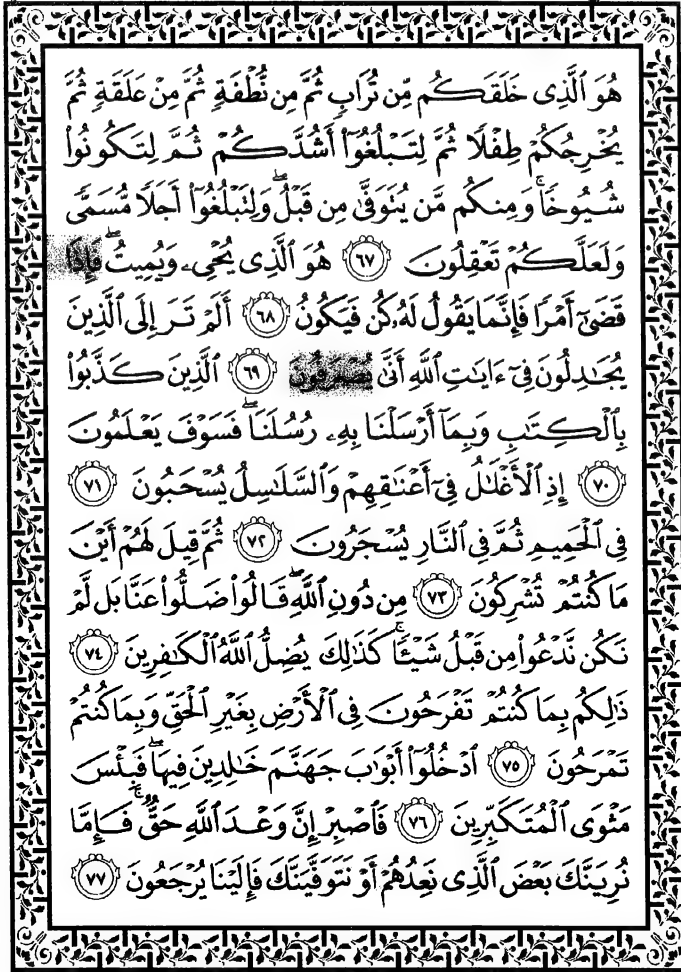 هُوَ ٱلَّذِى خَلَقَكُم مِّن تُرَابٍ ثُمَّ مِن نُّطْفَةٍ ثُمَّ مِنْ عَلَقَةٍ ثُمَّ
يُخْرِجُكُمْ طِفْلًا ثُمَّ لِتَبْلُغُوٓا۟ أَشُدَّكُمْ ثُمَّ لِتَكُونُوا۟
شُيُوخًا ۚ وَمِنكُم مَّن يُتَوَفَّىٰ مِن قَبْلُ ۖ وَلِتَبْلُغُوٓا۟ أَجَلًا مُّسَمًّى
وَلَعَلَّكُمْ تَعْقِلُونَ ﴿٦٧﴾ هُوَ ٱلَّذِى يُحْىِۦ وَيُمِيتُ ۖ فَإِذَا
قَضَىٰٓ أَمْرًا فَإِنَّمَا يَقُولُ لَهُۥ كُن فَيَكُونُ ﴿٦٨﴾ أَلَمْ تَرَ إِلَى ٱلَّذِينَ
يُجَـٰدِلُونَ فِىٓ ءَايَـٰتِ ٱللَّهِ أَنَّىٰ يُصْرَفُونَ ﴿٦٩﴾ ٱلَّذِينَ كَذَّبُوا۟
بِٱلْكِتَـٰبِ وَبِمَآ أَرْسَلْنَا بِهِۦ رُسُلَنَا ۖ فَسَوْفَ يَعْلَمُونَ
﴿٧٠﴾ إِذِ ٱلْأَغْلَـٰلُ فِىٓ أَعْنَـٰقِهِمْ وَٱلسَّلَـٰسِلُ يُسْحَبُونَ ﴿٧١﴾
فِى ٱلْحَمِيمِ ثُمَّ فِى ٱلنَّارِ يُسْجَرُونَ ﴿٧٢﴾ ثُمَّ قِيلَ لَهُمْ أَيْنَ
مَا كُنتُمْ تُشْرِكُونَ ﴿٧٣﴾ مِن دُونِ ٱللَّهِ ۖ قَالُوا۟ ضَلُّوا۟ عَنَّا بَل لَّمْ
نَكُن نَّدْعُوا۟ مِن قَبْلُ شَيْـًٔا ۚ كَذَٰلِكَ يُضِلُّ ٱللَّهُ ٱلْكَـٰفِرِينَ ﴿٧٤﴾
ذَٰلِكُم بِمَا كُنتُمْ تَفْرَحُونَ فِى ٱلْأَرْضِ بِغَيْرِ ٱلْحَقِّ وَبِمَا كُنتُمْ
تَمْرَحُونَ ﴿٧٥﴾ ٱدْخُلُوٓا۟ أَبْوَٰبَ جَهَنَّمَ خَـٰلِدِينَ فِيهَا ۖ فَبِئْسَ
مَثْوَى ٱلْمُتَكَبِّرِينَ ﴿٧٦﴾ فَٱصْبِرْ إِنَّ وَعْدَ ٱللَّهِ حَقٌّ ۚ فَإِمَّا
نُرِيَنَّكَ بَعْضَ ٱلَّذِى نَعِدُهُمْ أَوْ نَتَوَفَّيَنَّكَ فَإِلَيْنَا يُرْجَعُونَ ﴿٧٧﴾